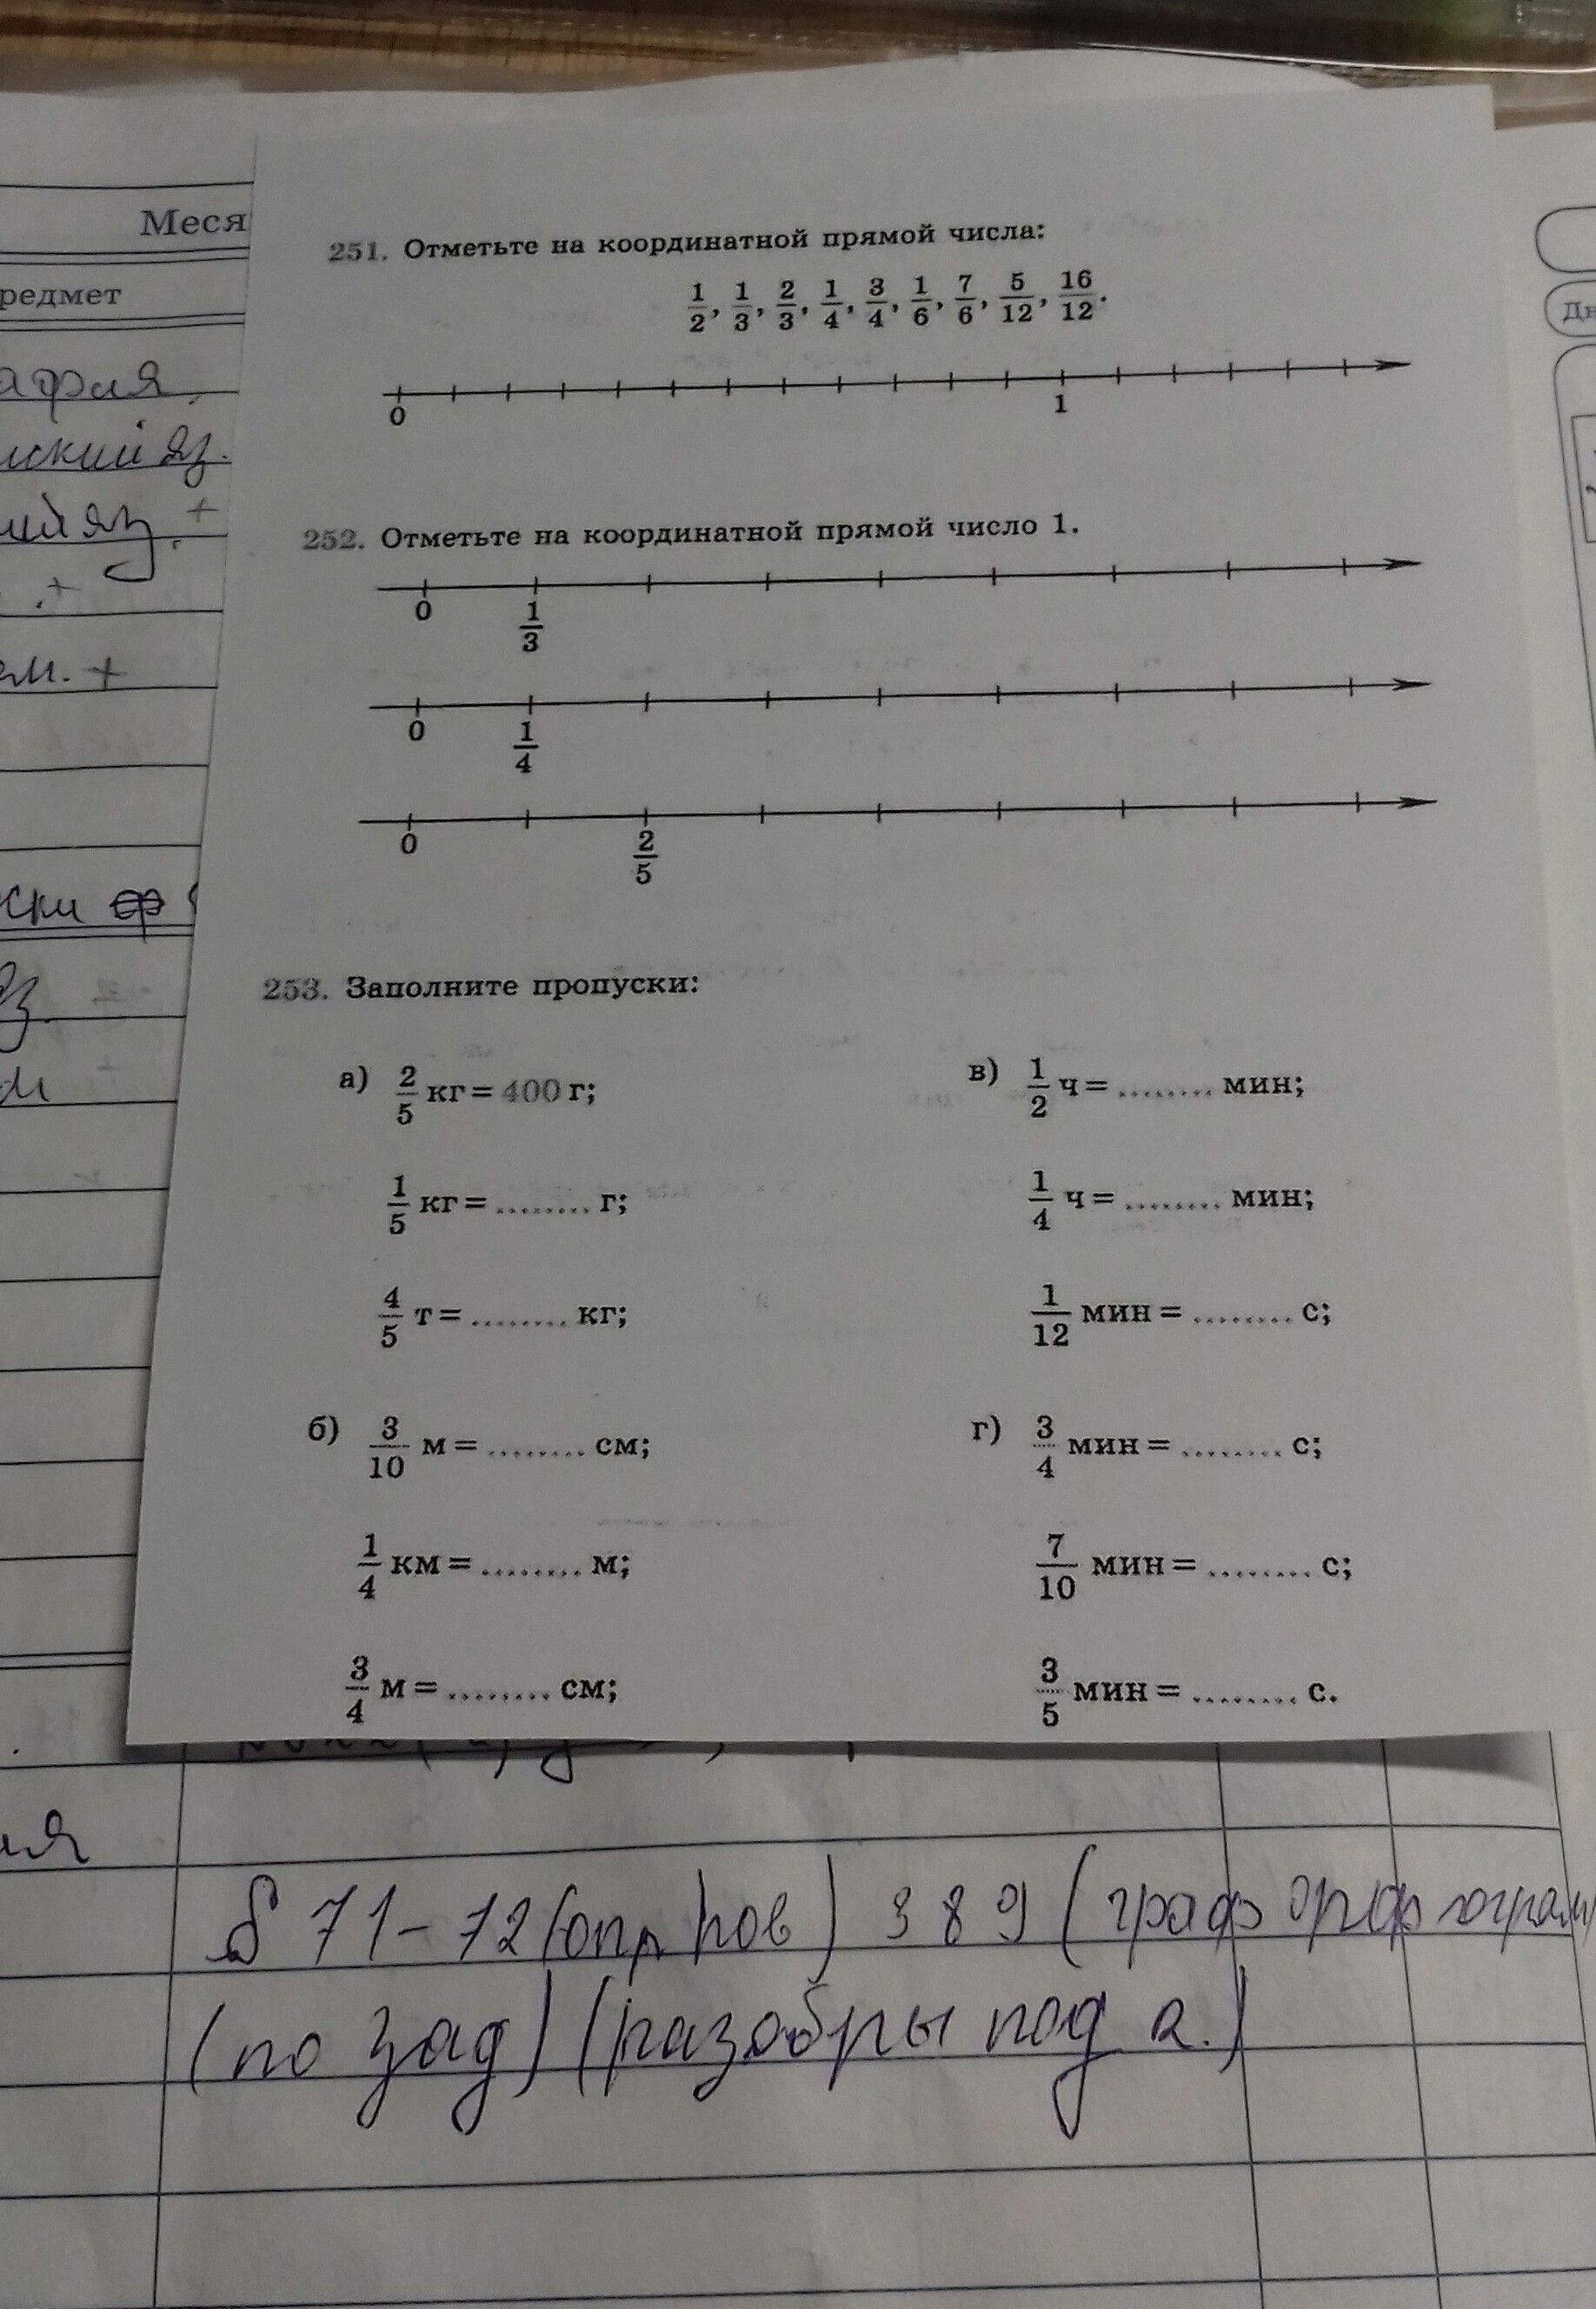 Меся
редмет
афия,
ский яз.
251. Отметьте на координатной прямой числа:
1/2, 1/3, 2/3, 1/4, 3/4, 1/6, 7/6, 5/12, 16/12.
0 1
252. Отметьте на координатной прямой число 1.
0 1/3
0 1/4
0 2/5
253. Заполните пропуски:
а) 2/5 кг = 400 г;
1/5 кг = ........ г;
4/5 т = ........ кг;
б) 3/10 м = ........ см;
1/4 км = ........ м;
3/4 м = ........ см;
в) 1/2 ч = ........ мин;
1/4 ч = ........ мин;
1/12 мин = ........ с;
г) 3/4 мин = ........ с;
7/10 мин = ........ с;
3/5 мин = ........ с.
Дн
§ 71-72 (опр пов) 389 (граф орфограмм
(по зад) (разобры под а.)